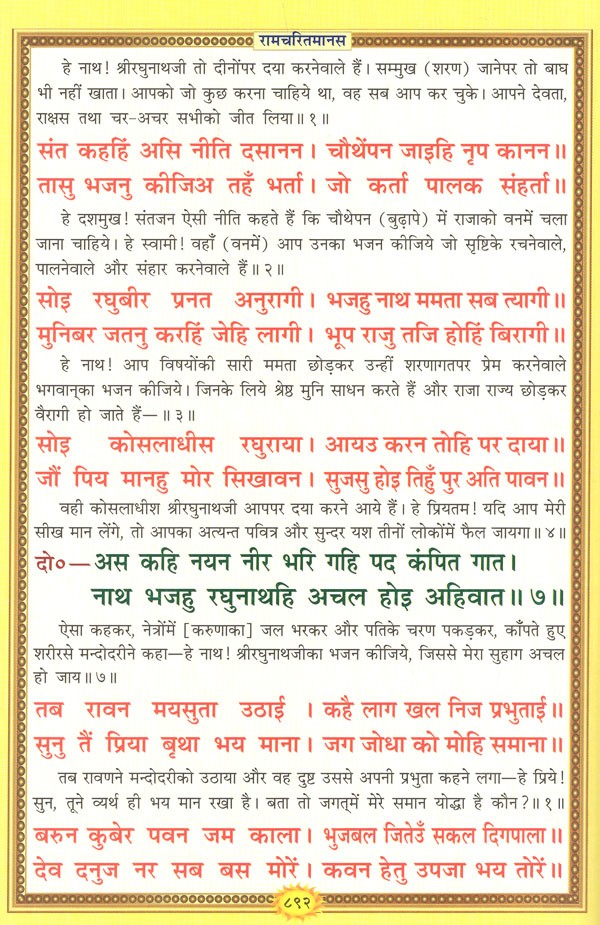 रामचरितमानस
हे नाथ! श्रीरघुनाथजी तो दीनोंपर दया करनेवाले हैं। सम्मुख (शरण) जानेपर तो बाघ
भी नहीं खाता। आपको जो कुछ करना चाहिये था, वह सब आप कर चुके। आपने देवता,
राक्षस तथा चर-अचर सभीको जीत लिया॥ १॥
संत कहहिं असि नीति दसानन। चौथेंपन जाइहि नृप कानन॥
तासु भजनु कीजिअ तहँ भर्ता। जो कर्ता पालक संहर्ता॥
हे दशमुख! संतजन ऐसी नीति कहते हैं कि चौथेपन (बुढ़ापे) में राजाको वनमें चला
जाना चाहिये। हे स्वामी! वहाँ (वनमें) आप उनका भजन कीजिये जो सृष्टिके रचनेवाले,
पालनेवाले और संहार करनेवाले हैं॥ २॥
सोइ रघुबीर प्रनत अनुरागी। भजहु नाथ ममता सब त्यागी॥
मुनिबर जतनु करहिं जेहि लागी। भूप राजु तजि होहिं बिरागी॥
हे नाथ! आप विषयोंकी सारी ममता छोड़कर उन्हीं शरणागतपर प्रेम करनेवाले
भगवान्‌का भजन कीजिये। जिनके लिये श्रेष्ठ मुनि साधन करते हैं और राजा राज्य छोड़कर
वैरागी हो जाते हैं—॥ ३॥
सोइ कोसलाधीस रघुराया। आयउ करन तोहि पर दाया॥
जौं पिय मानहु मोर सिखावन। सुजसु होइ तिहुँ पुर अति पावन॥
वही कोसलाधीश श्रीरघुनाथजी आपपर दया करने आये हैं। हे प्रियतम! यदि आप मेरी
सीख मान लेंगे, तो आपका अत्यन्त पवित्र और सुन्दर यश तीनों लोकोंमें फैल जायगा॥ ४॥
दो०—अस कहि नयन नीर भरि गहि पद कंपित गात।
नाथ भजहु रघुनाथहि अचल होइ अहिवात॥ ७॥
ऐसा कहकर, नेत्रोंमें [करुणाका] जल भरकर और पतिके चरण पकड़कर, काँपते हुए
शरीरसे मन्दोदरीने कहा—हे नाथ! श्रीरघुनाथजीका भजन कीजिये, जिससे मेरा सुहाग अचल
हो जाय॥ ७॥
तब रावन मयसुता उठाई । कहै लाग खल निज प्रभुताई॥
सुनु तैं प्रिया बृथा भय माना। जग जोधा को मोहि समाना॥
तब रावणने मन्दोदरीको उठाया और वह दुष्ट उससे अपनी प्रभुता कहने लगा—हे प्रिये!
सुन, तूने व्यर्थ ही भय मान रखा है। बता तो जगत्‌में मेरे समान योद्धा है कौन?॥ १॥
बरुन कुबेर पवन जम काला। भुजबल जितेउँ सकल दिगपाला॥
देव दनुज नर सब बस मोरें। कवन हेतु उपजा भय तोरें॥
८९२